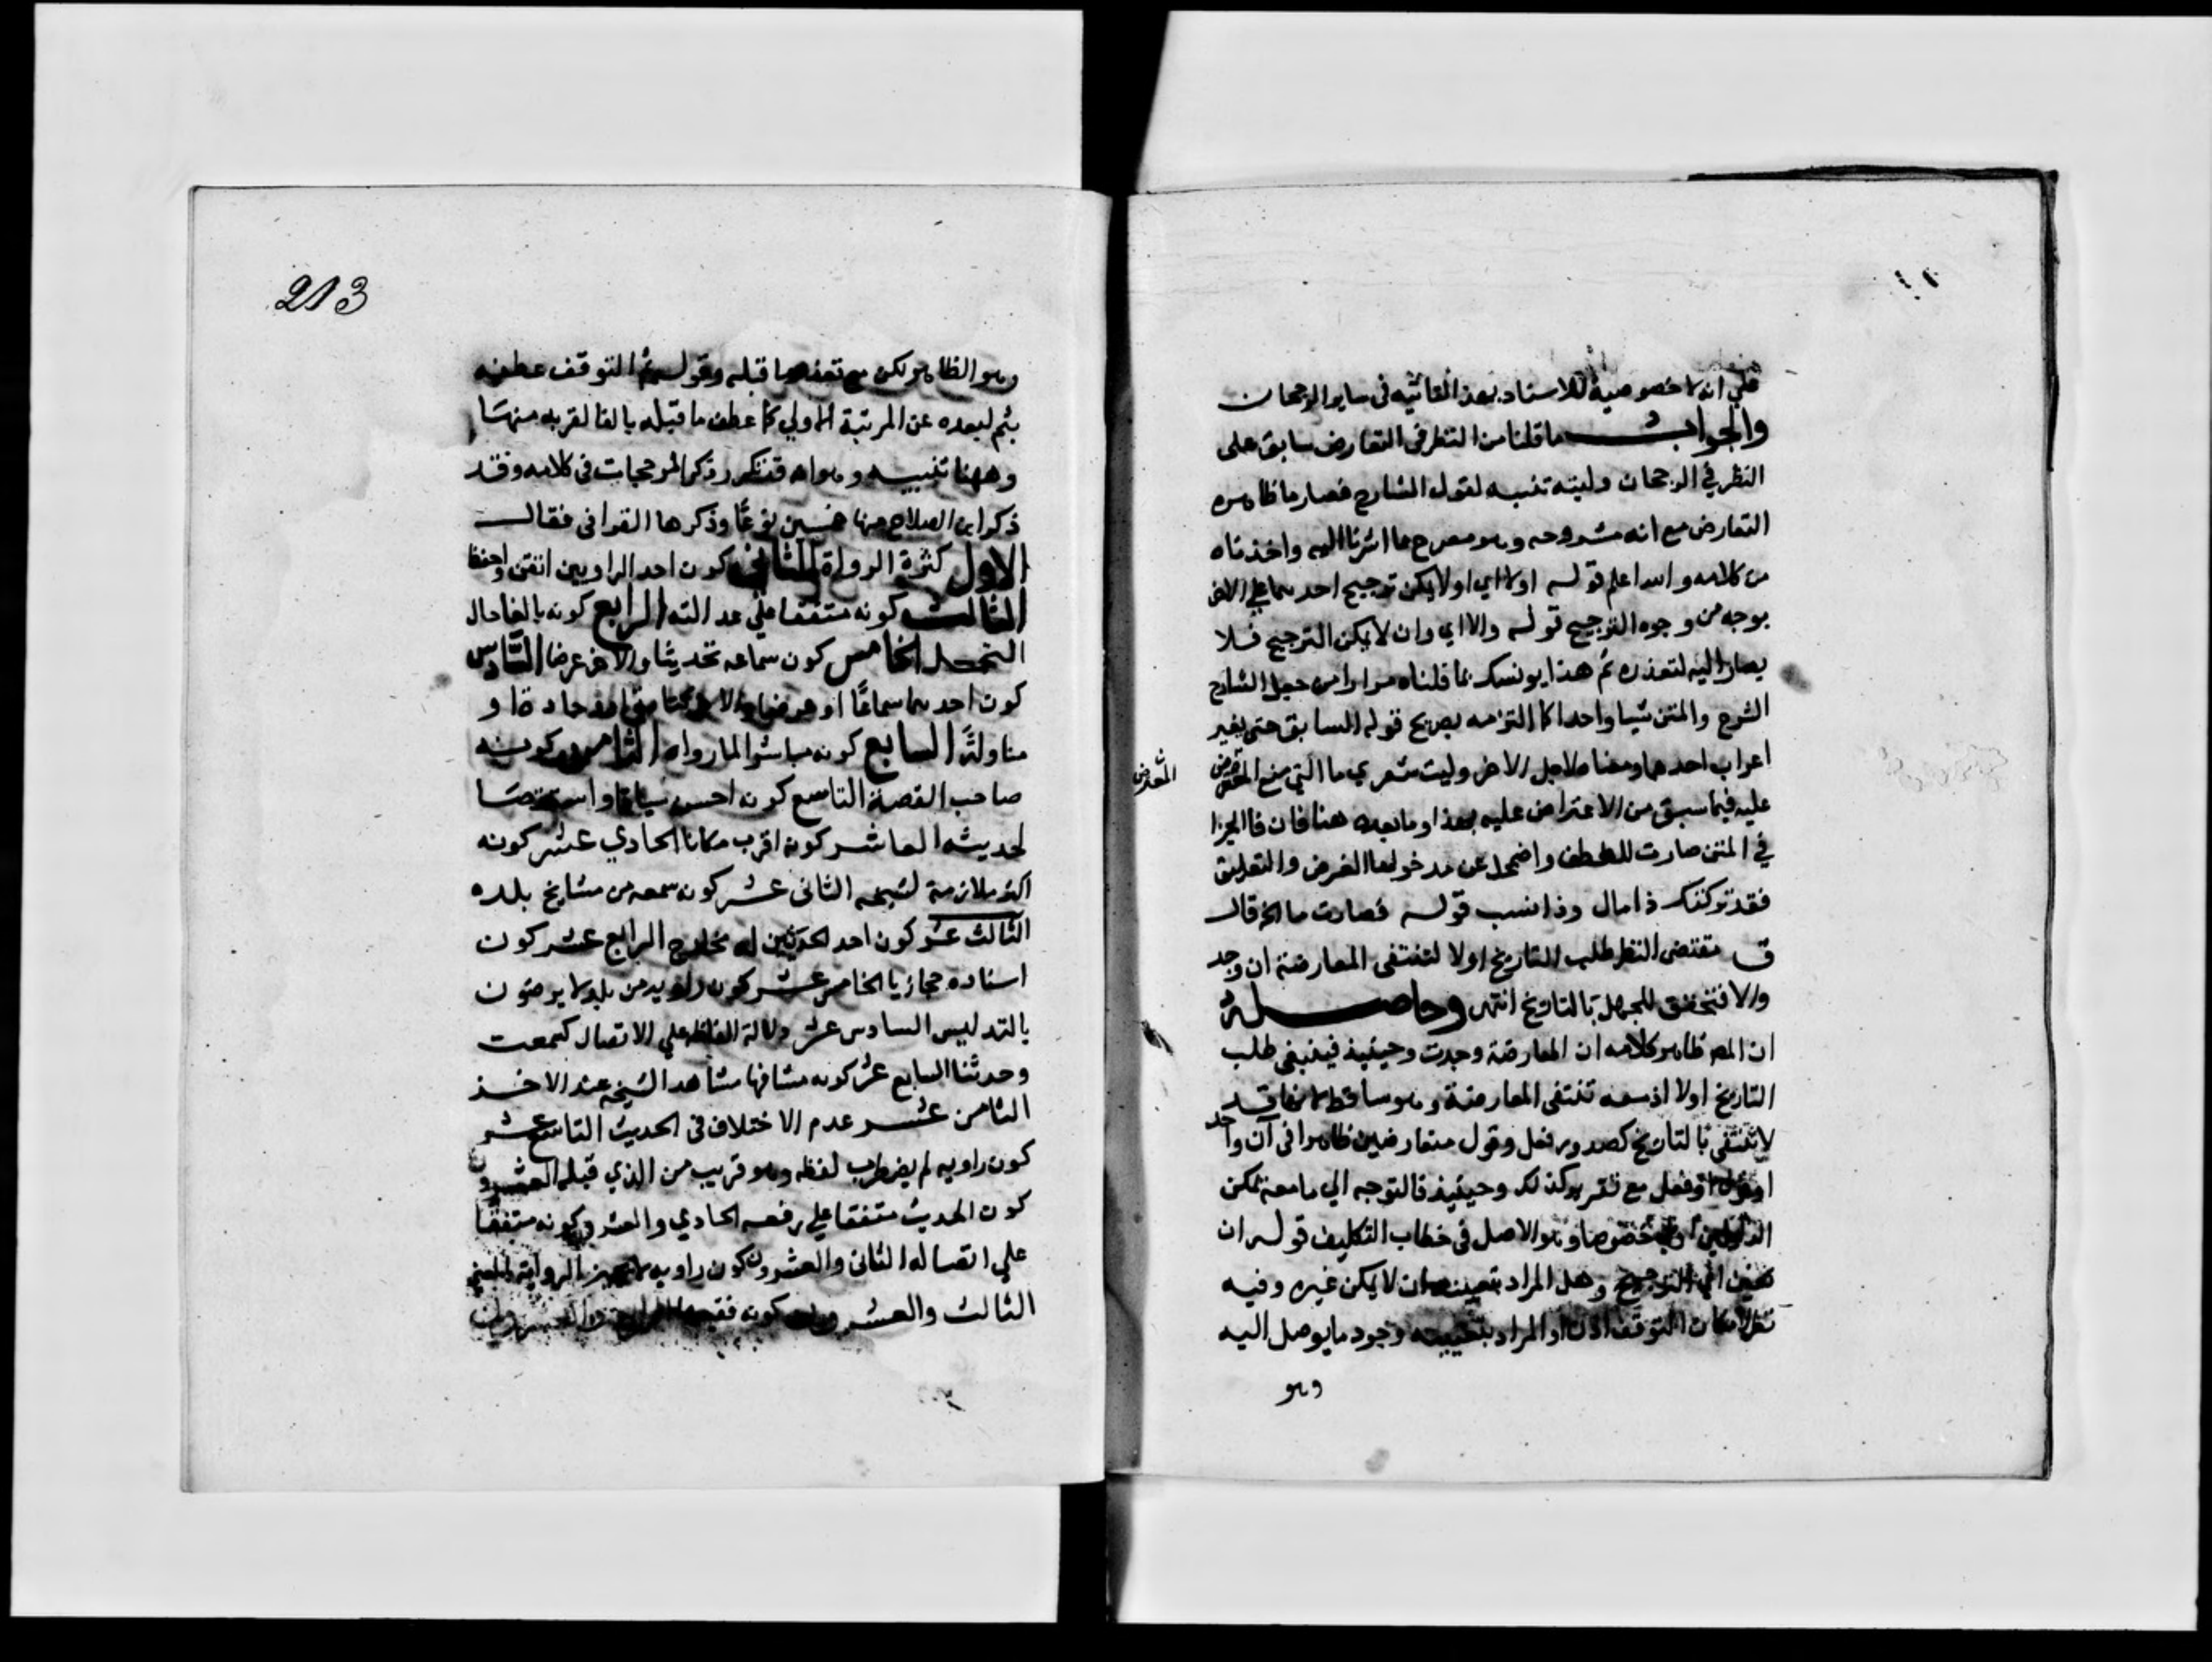 علي انه لا خصوصية للاستاد بهذا القاتيه في ساير الرجحان
والجواب ما قلنا من النظر في التعارض سابق على
النظر في الرجحان وليته تنبه لقول الشارح فصار ما ظاهره
التعارض مع انه مشروحه وهو مصرح بما اشرنا اليه واخذناه
من كلامه والله اعلم قوله اولا اي او لا يمكن ترجيح احدهما علي الاخر
بوجه من وجوه الترجيح قوله والا اي وان لا يمكن الترجيح فلا
يصار اليه لتعذره ثم هذا يونسك بما قلناه مرارا من جعل الشارح
الشرح والمتن شيا واحدا كما التزمه بصريح قوله السابق حتي يغير
اعراب احدهما ومعناه لاجل الاخر وليت شعري ما الذي منع المعترض
المعترض
عليه فيما سبق من الاعتراض عليه بهذا وما بعده هنا فان فا الجزا
في المتن صارت للعطف واضمحل عن مدخولها الغرض والتعليق
فقد تركتك ذا مال وذا نسب قوله فصارت ما الخ قال
ق مقتضى النظر طلب التاريخ اولا لتنتفى المعارضة ان وجد
والا فتتحقق للجهل بالتاريخ انتهى وحاصله
ان المص ظاهر كلامه ان المعارضة وجدت وحينيذ فينبغي طلب
التاريخ اولا اذ معه تنتفى المعارضة وهو ساقط لانها قد
لا تنتفى بالتاريخ كصدور فعل وقول متعارضين ظاهرا في آن واحد
او قول او فعل مع تقرير كذلك وحينيذ فالتوجه الي ما معه يمكن
خصوصا وهو الاصل في خطاب التكليف قوله ان
تعين اي الترجيح وهل المراد بتعينه ان لا يمكن غيره وفيه
نظر لامكان التوقف اذن او المراد بتعينه وجود ما يوصل اليه
وهو
213
وهو الظاهر لكن مع تعذر ما قبله وقوله ثم التوقف عطفه
بثم لبعده عن المرتبة الاولي كما عطف ما قبله بالفا لقربه منها
وههنا تنبيه وهو انه قد تكرر ذكر المرجحات في كلامه وقد
ذكر ابن الصلاح منها خمسين نوعًا وذكرها القرافي فقال
الاول كثرة الرواة الثاني كون احد الراويين اتقن واحفظ
الثالث كونه متفقا علي عدالته الرابع كونه بالغا حال
التحمل الخامس كون سماعه تحديثا والاخر عرضا السادس
كون احدهما سماعًا او عرضا والاخر كتابة او وجادة او
مناولةً السابع كونه مباشرا لما رواه الثامن كونه
صاحب القصة التاسع كونه احسن سياقا واستقصا
لحديثه العاشر كونه اقرب مكانا الحادي عشر كونه
اكثر ملازمة لشيخه الثاني عشر كونه سمعه من مشايخ بلده
الثالث عشر كون احد الحديثين له مخارج الرابع عشر كون
اسناده حجازيا الخامس عشر كون راويه من بلد لا يرضون
بالتدليس السادس عشر دلالة الفاظه علي الاتصال كسمعت
وحدثنا السابع عشر كونه مشافها مشاهدا لشيخه عند الاخذ
الثامن عشر عدم الاختلاف في الحديث التاسع عشر
كون راويه لم يضطرب لفظه وهو قريب من الذي قبله العشرون
كون الحديث متفقا علي رفعه الحادي والعشرون كونه متفقًا
علي اتصاله الثاني والعشرون كون راويه لا يجيز الرواية بالمعني
الثالث والعشرون كونه فقيها الرابع والعشرون